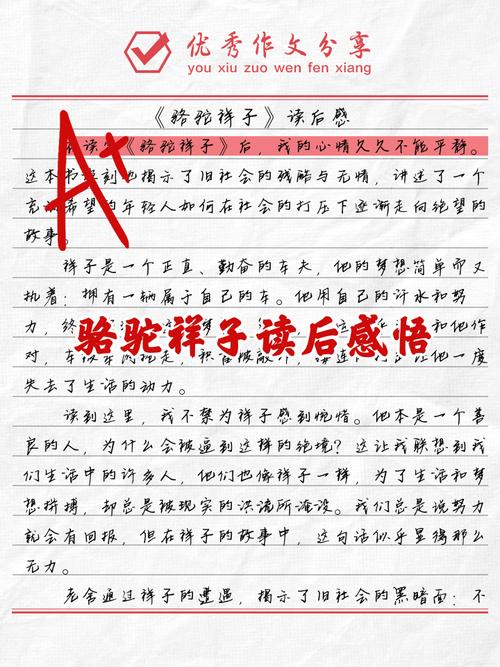 优秀作文分享
you xiu zuo wen fen xiang
《骆驼祥子》读后感
A+
读完《骆驼祥子》后，我的心情久久不能平静。
这本书深刻地揭示了旧社会的残酷与无情，讲述了一个
充满希望的年轻人如何在社会的打压下逐渐走向绝望的
故事。
祥子是一个正直、勤奋的车夫，他的梦想简单而又
执着：拥有一辆属于自己的车。他用自己的汗水和努
力，终
和他作
骆驼祥子读后感悟
对，车
他一度
失去了生活的动力。
读到这里，我不禁为祥子感到惋惜。他本是一个善
良的人，为什么会被逼到这样的绝境？这让我联想到我
们生活中的许多人，他们也像祥子一样，为了生活和梦
想拼搏，却总是被现实的洪流所淹没。我们总是说努力
就会有回报，但在祥子的故事中，这句话似乎显得那么
无力。
老舍通过祥子的遭遇，揭示了旧社会的黑暗面：不